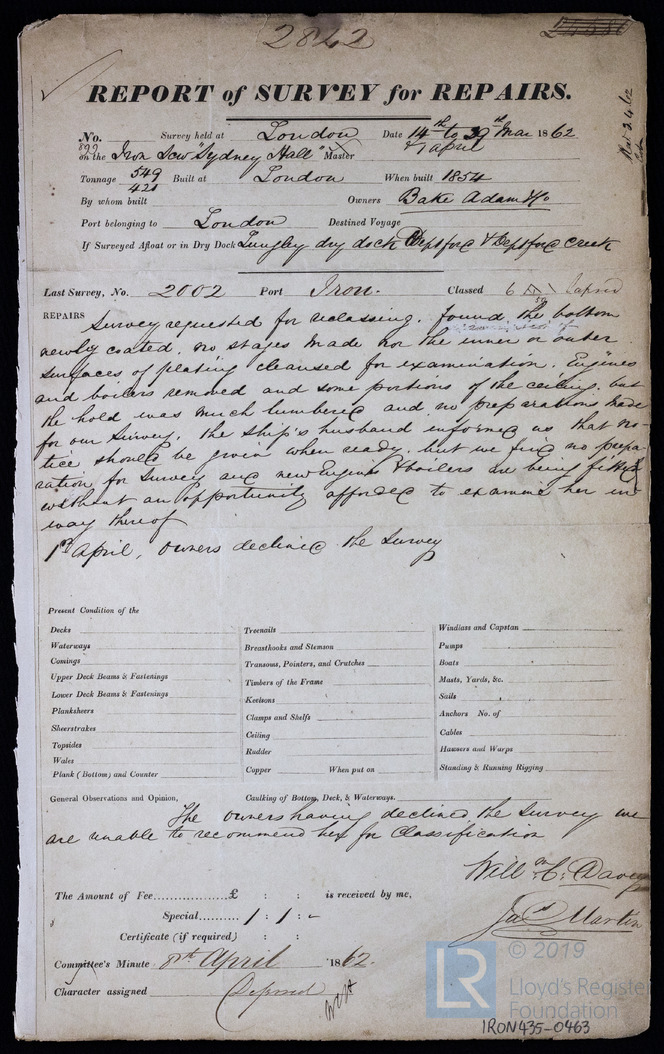 2822
REPORT of SURVEY for REPAIRS.
No. Survey held at London Date 14th to 30th Mar 1862
899 on the Iron Scw "Sydney Hall" Master & 7 april
Tonnage 549 Built at London When built 1854
421
By whom built Owners Bake Adam & Co
Port belonging to London Destined Voyage
If Surveyed Afloat or in Dry Dock Lungley dry dock Deptford & Deptford Creek
Last Survey, No. 2002 Port Iron. Classed 6 lapsed
REPAIRS Survey requested for reclassing. found the bottom
newly coated, no stages made nor the inner or outer
surfaces of plating cleansed for examination. Engines
and boilers removed and some portions of the ceiling, but
the hold was much lumbered and no preparations made
for our survey. the ship's husband informed us that no-
tice should be given when ready. but we find no prepa-
ration for survey and new Engines & boilers are being fitted
without an opportunity afforded to examine her in
way thereof
1st April, Owners declined the Survey
Present Condition of the
Decks
Waterways
Comings
Upper Deck Beams & Fastenings
Lower Deck Beams & Fastenings
Planksheers
Sheerstrakes
Topsides
Wales
Plank (Bottom) and Counter
Treenails
Breasthooks and Stemson
Transons, Pointers, and Crutches
Timbers of the Frame
Keelsons
Clamps and Shelfs
Ceiling
Rudder
Copper When put on
Windlass and Capstan
Pumps
Boats
Masts, Yards, &c.
Sails
Anchors No. of
Cables
Hawsers and Warps
Standing & Running Rigging
General Observations and Opinion, Caulking of Bottom, Deck, & Waterways.
The owners having declined the Survey we
are unable to recommend her for Classification
Will m. C. Davey
Jas. Martin
The Amount of Fee £ : : is received by me,
Special 1 : 1 : -
Certificate (if required) : :
Committee's Minute 8th April 1862.
Character assigned Expired
© 2019
LR Lloyd's Register
Foundation
IRON435-0463